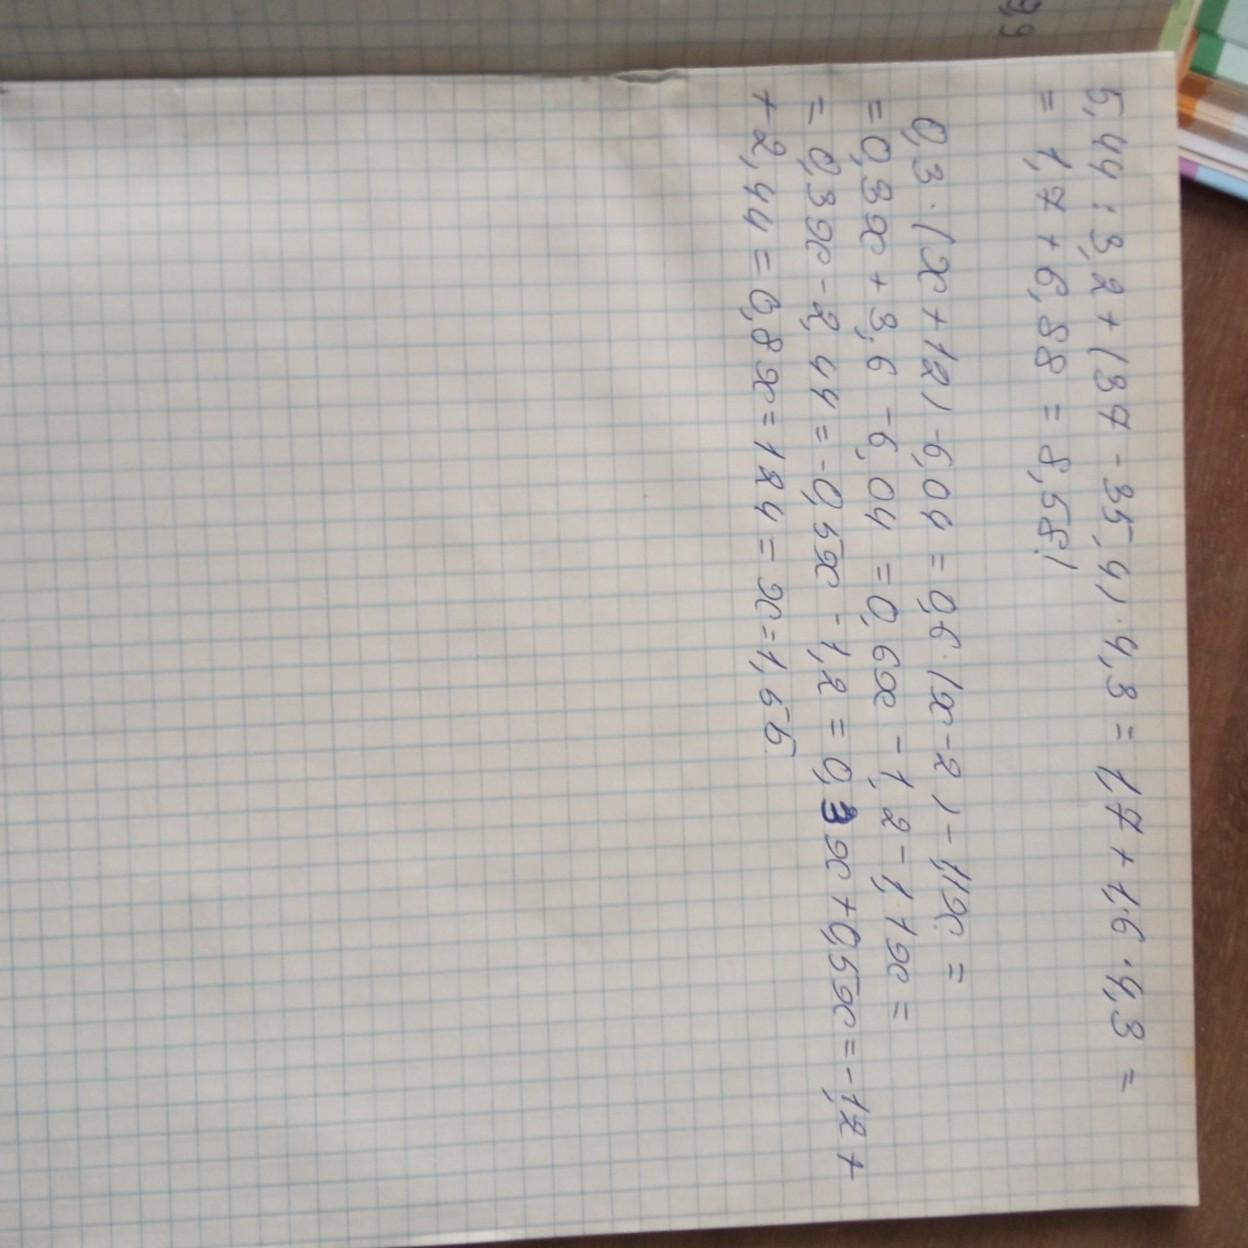 5,44 : 3,2 + (37 - 35,4) · 4,3 = 1,7 + 1,6 · 4,3 =
= 1,7 + 6,88 = 8,58!
0,3 · (x + 12) - 6,04 = 0,6 · (x - 2) - 1,1x =
= 0,3x + 3,6 - 6,04 = 0,6x - 1,2 - 1,1x =
= 0,3x - 2,44 = -0,5x - 1,2 = 0,3x + 0,5x = -1,2 +
+ 2,44 = 0,8x = 1,24 = x = 1,55